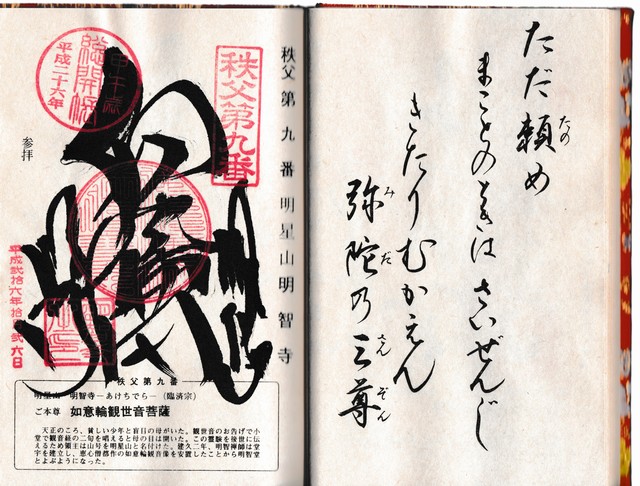 ただ頼め
たの
まことのときは さいぜんじ
きたりむかえん
弥陀の三尊
みだ さんぞん
秩父第九番 明星山明智寺
秩父第九番
総開帳
甲午歳
平成二十六年
参拝
平成弐拾六年拾弐六日
秩父第九番
明星山 明智寺―あけちでら―（臨済宗）
ご本尊 如意輪観世音菩薩
天正のころ、貧しい少年と盲目の母がいた。観世音のお告げで小
堂で観音経の二句を唱えると母の目は開いた。この霊験を後世に伝
えるため領主は山号を明星山と名付けた。建久二年、明智禅師は堂
宇を建立し、恵心僧都作の如意輪観音像を安置したことから明智堂
とよぶようになった。